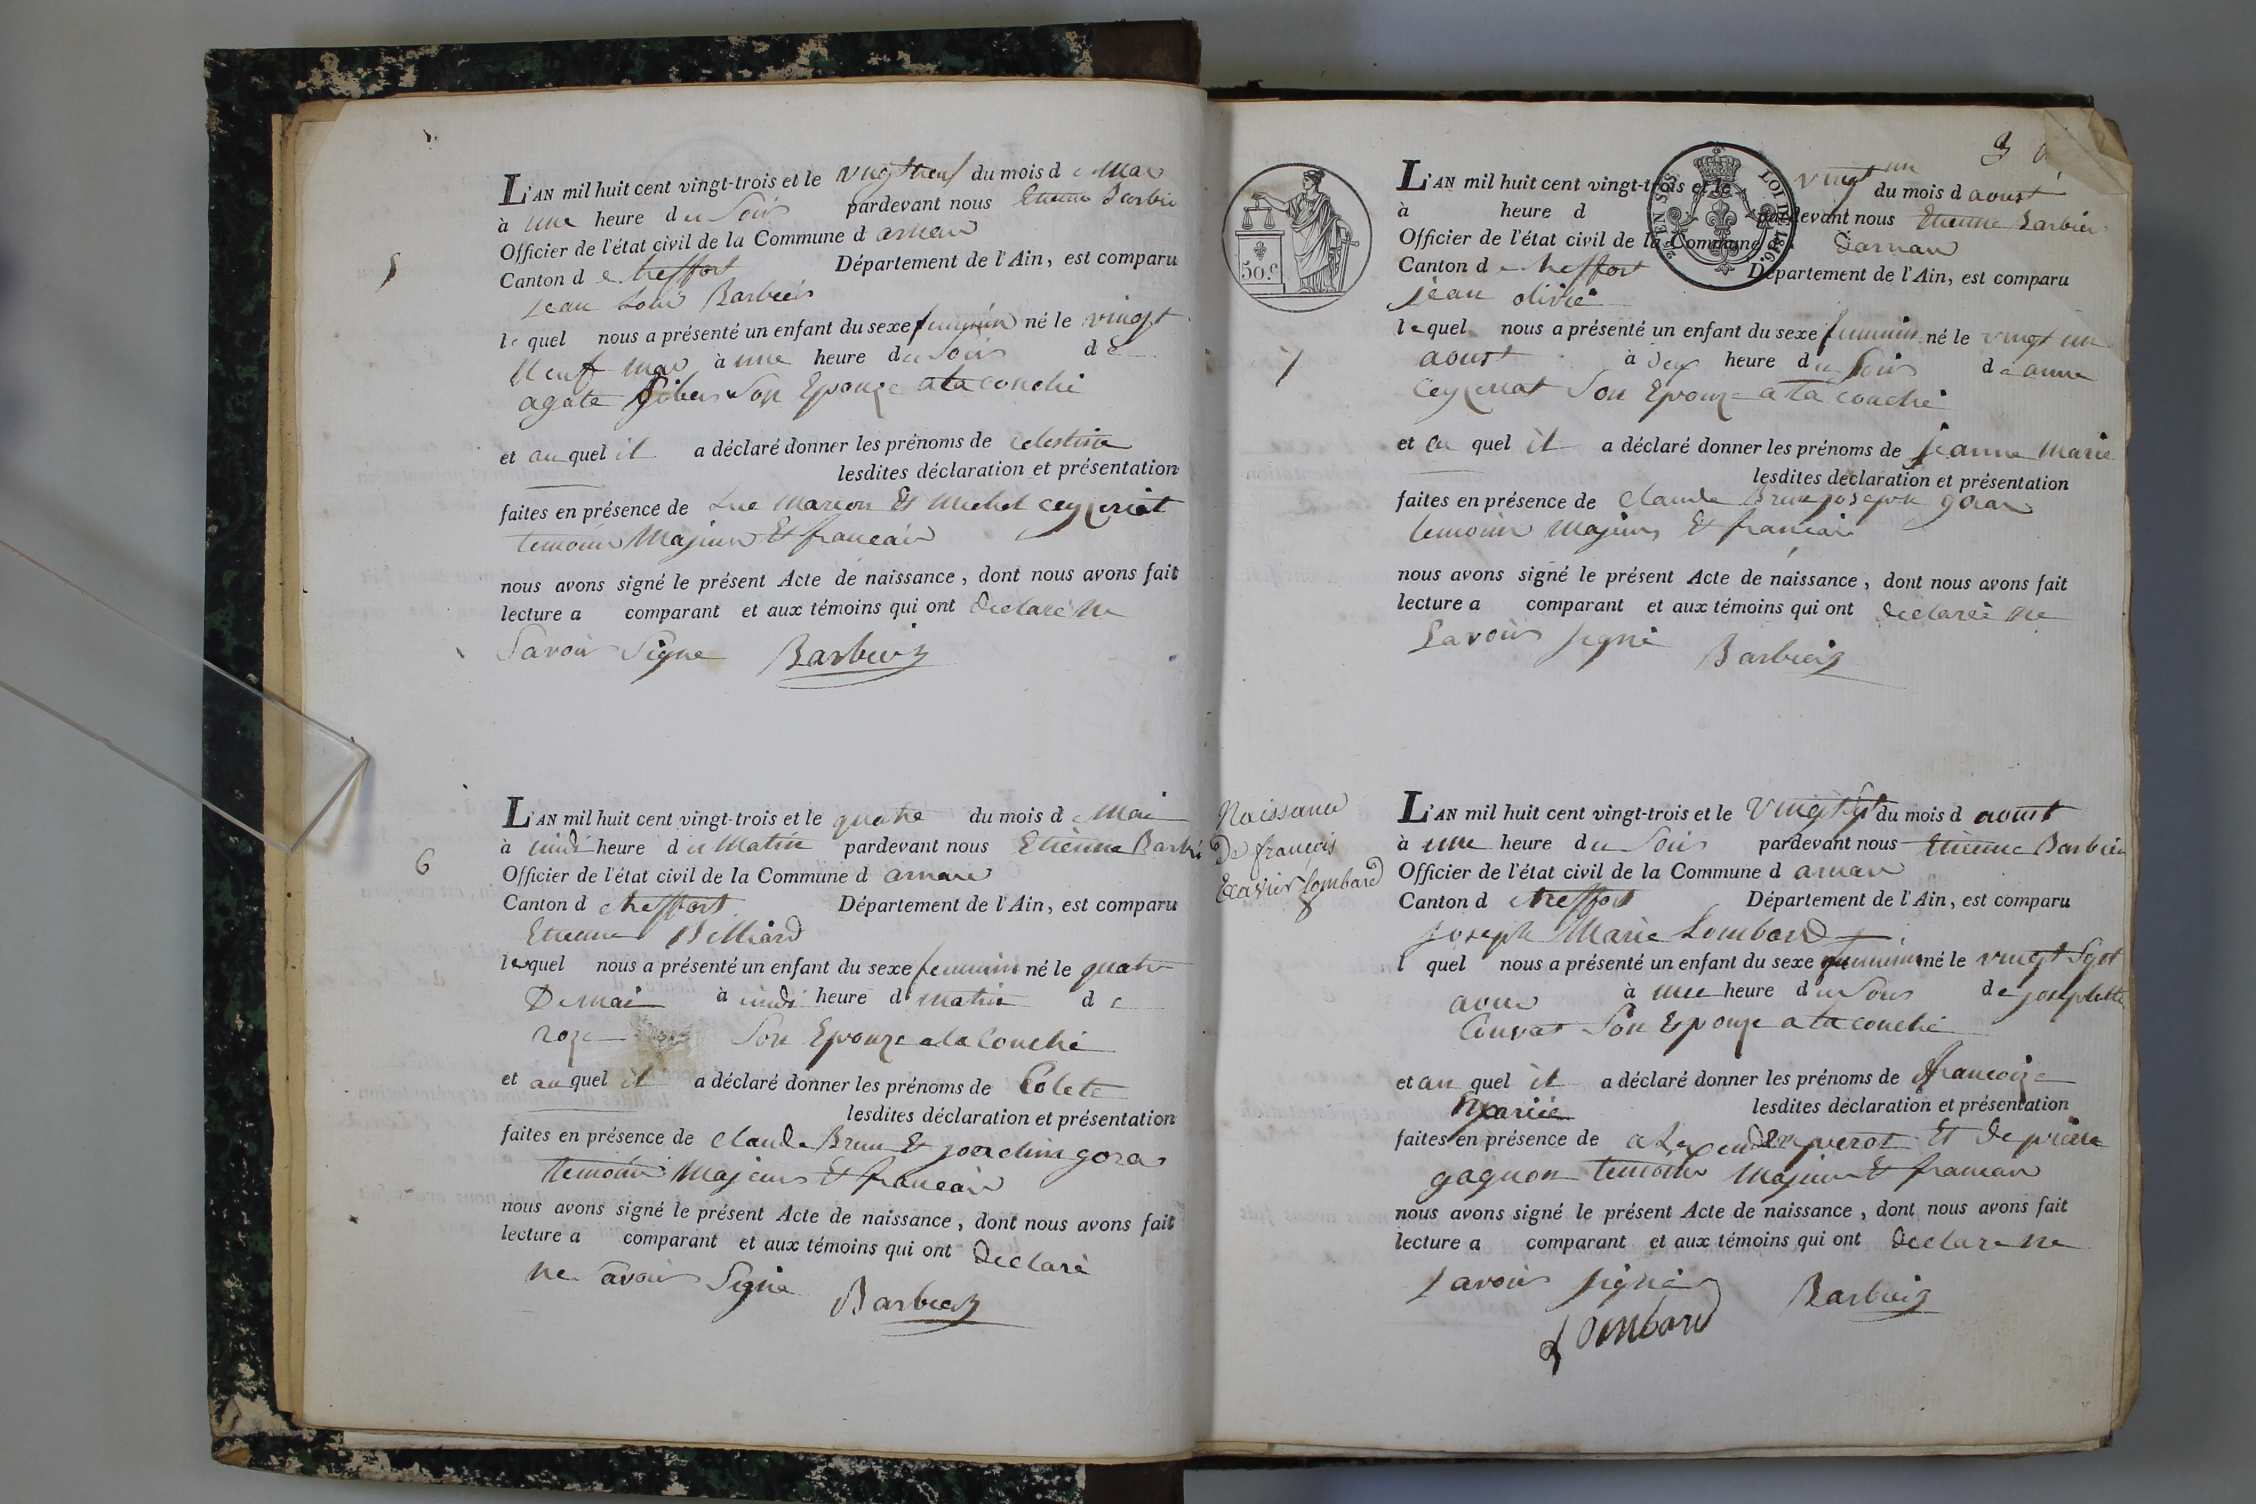 L'AN mil huit cent vingt-trois et le vingt neuf du mois d e Mar
à une heure d u Soir pardevant nous Etienne Barbie
Officier de l'état civil de la Commune d arnan
Canton d e treffort Département de l'Ain, est comparu
5
Jean Loui Barbier
le quel nous a présenté un enfant du sexe feminin né le vingt
Neuf mar à une heure d u Soir d e
agate Son Epouze a la couche
et au quel il a déclaré donner les prénoms de Celestine
lesdites déclaration et présentation
faites en présence de Luc Marion Et Michel Ceyzeriat
temoin Majeur Et francair
nous avons signé le présent Acte de naissance, dont nous avons fait
lecture a comparant et aux témoins qui ont declaré ne
Savoir Signe Barbier
L'AN mil huit cent vingt-trois et le quatre du mois d e Mai
à heure d u Matin pardevant nous Etienne Barbie
6
Officier de l'état civil de la Commune d arnan
Canton d e treffort Département de l'Ain, est comparu
Etienne Billiard
lequel nous a présenté un enfant du sexe feminin né le quatre
De mai à heure d matin d e
roze Son Epouze a la Couche
et au quel il a déclaré donner les prénoms de Colete
lesdites déclaration et présentation
faites en présence de Claude Brun Et joachim goras
temoin Majeurs Et francair
nous avons signé le présent Acte de naissance, dont nous avons fait
lecture a comparant et aux témoins qui ont declaré
ne Savoir Signe Barbier
3
50 c.
EN SUS. LOI DE 1816.
L'AN mil huit cent vingt-trois et le vingt un du mois d aoust
à heure d pardevant nous Etienne Barbier
Officier de l'état civil de la Commune d'arnan
Canton d e treffort Département de l'Ain, est comparu
jean olivie
7
le quel nous a présenté un enfant du sexe feminin né le vingt un
aoust à deux heure d u Soir d e anne
Ceyzeriat Son Epouze a la couche
et au quel il a déclaré donner les prénoms de jeanne Marie
lesdites déclaration et présentation
faites en présence de Claude Brun joseph goras
temoin majeurs Et francair
nous avons signé le présent Acte de naissance, dont nous avons fait
lecture a comparant et aux témoins qui ont declaré ne
Savoir signé Barbier
Naissance
De françois
Exavier Lombard
8
L'AN mil huit cent vingt-trois et le Vingt Sept du mois d aoust
à une heure d u Soir pardevant nous Etienne Barbier
Officier de l'état civil de la Commune d arnan
Canton d e treffort Département de l'Ain, est comparu
joseph Marie Lombard
l quel nous a présenté un enfant du sexe né le vingt Sept
aou à une heure d u Soir d e josephette
Convat Son Epouze a la couche
et au quel il a déclaré donner les prénoms de francoize
Marie lesdites déclaration et présentation
faites en présence de perot Et de pierre
gagnon temoin Majeur Et francair
nous avons signé le présent Acte de naissance, dont nous avons fait
lecture a comparant et aux témoins qui ont declare ne
Savoir signé Barbier
Lombard